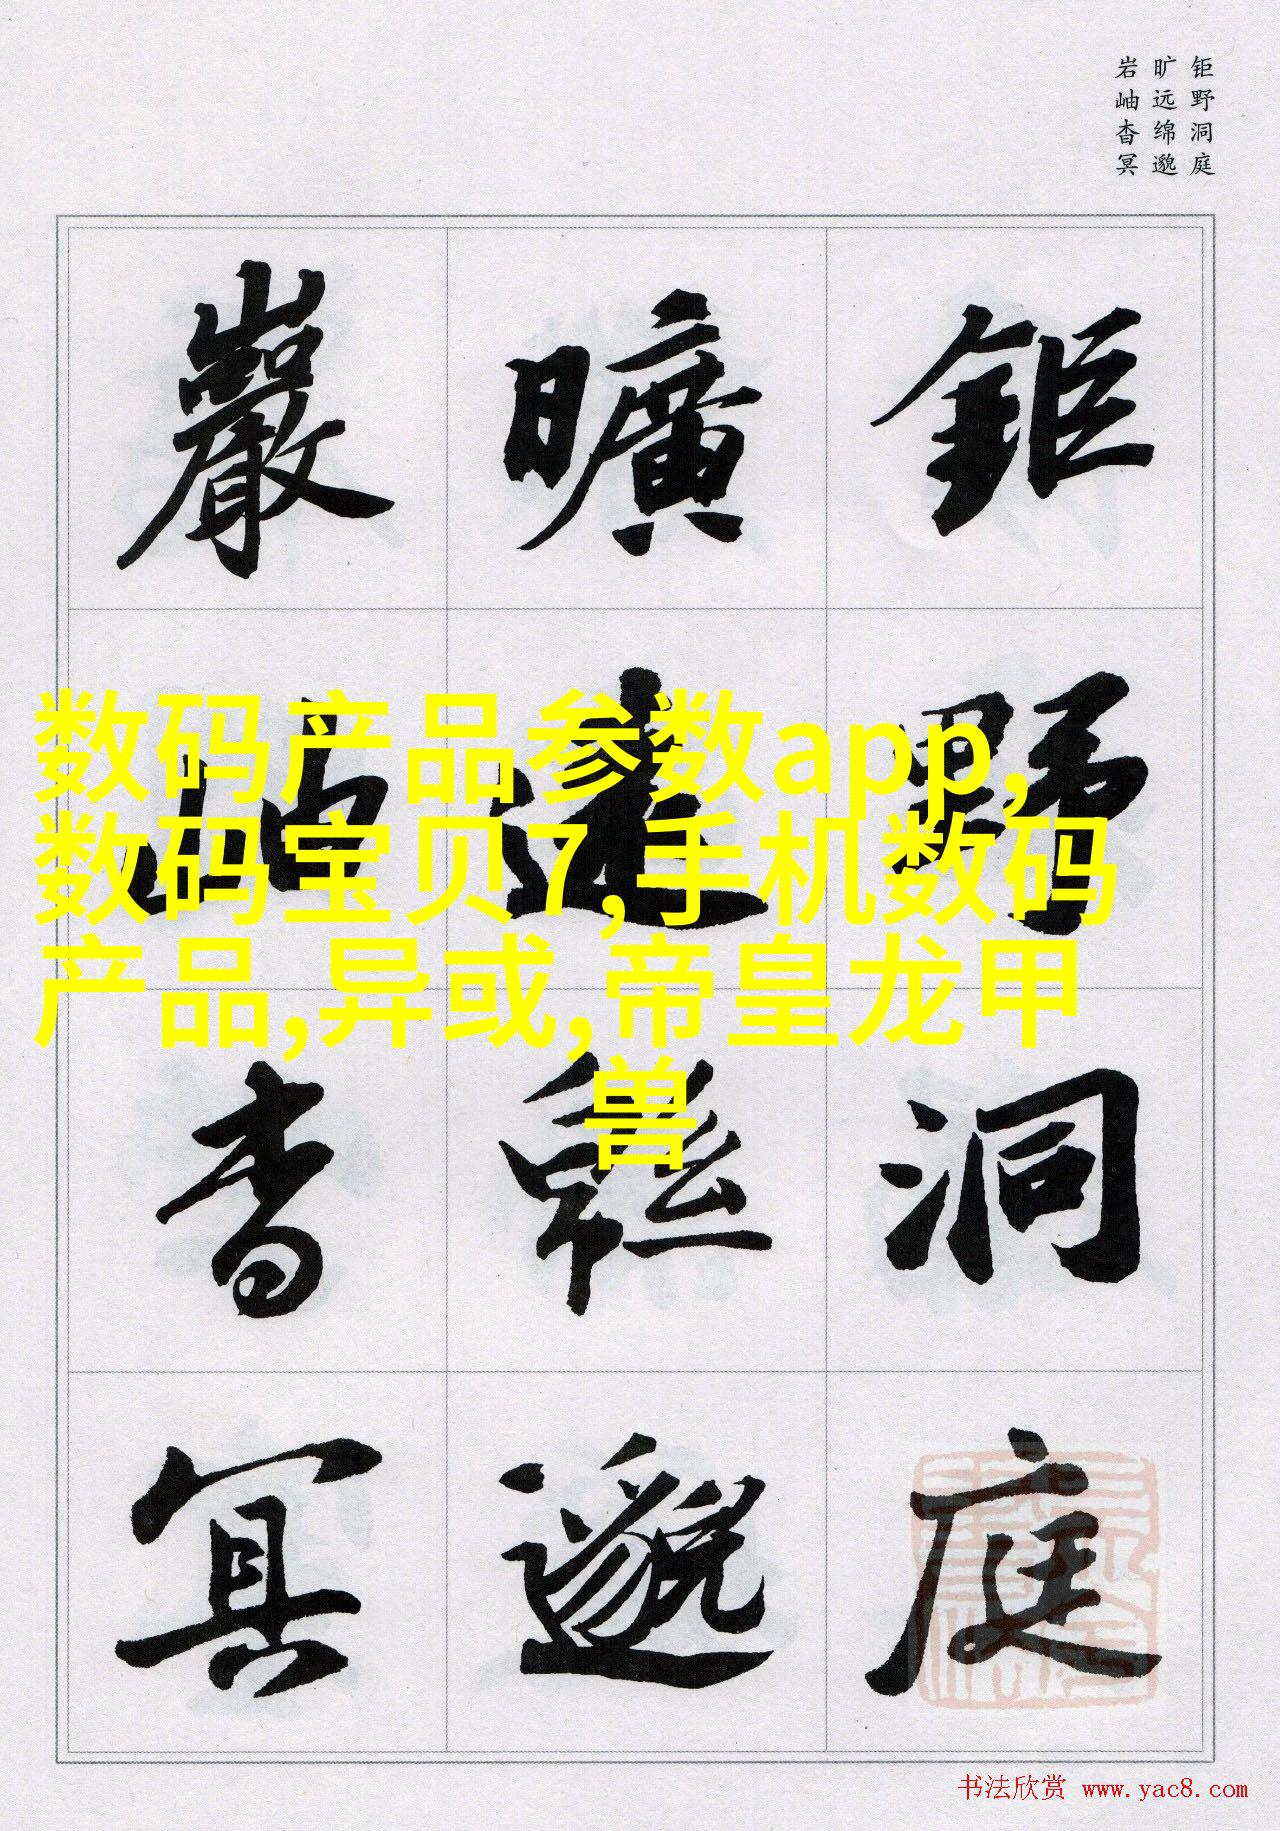 钜野洞庭
旷远绵邈
岩岫杳冥
鉅野洞庭
曠遠緜邈
巖岫杳冥
数码产品参数app,
数码宝贝7,手机数码
产品,异或,帝皇龙甲
兽
书法欣赏 www.yac8.com